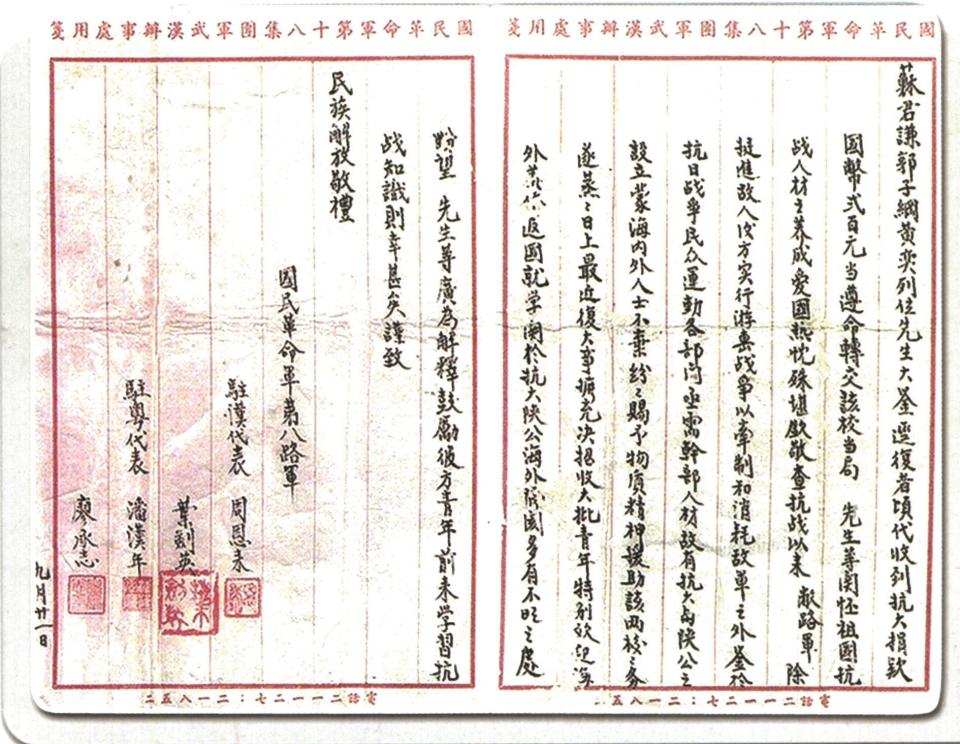 國民革命軍第十八集團軍武漢辦事處用箋
蘇君謙郭子綱黃奕列位先生大鉴逕復者頃代收到抗大捐款
國幣弍百元当遵命轉交該校当局 先生等関怀祖國抗
战人材之养成爱國热忱殊堪欽敬查抗战以来 敝路軍除
挺進敌人後方实行游击战争以牵制和消耗敌軍之外鉴於
抗日战争民众運動各部门亟需幹部人材故有抗大与陕公之
設立蒙海内外人士不棄纷之赐予物质精神援助該两校之务
遂蒸之日上最近復大事擴充决招收大批青年特别欢迎海
外 返國就学関於抗大陕公海外 國多有不明之處
電話二一一二七：二一八五二
國民革命軍第十八集團軍武漢辦事處用箋
盼望 先生等廣為解釋鼓励後方青年前来学習抗
战知識則幸甚矣謹致
民族解放敬禮
國民革命軍第八路軍
駐漢代表 周恩来
葉剑英
駐粤代表 潘漢年
廖承志
九月廿一日
電話二一一二七：二一八五二